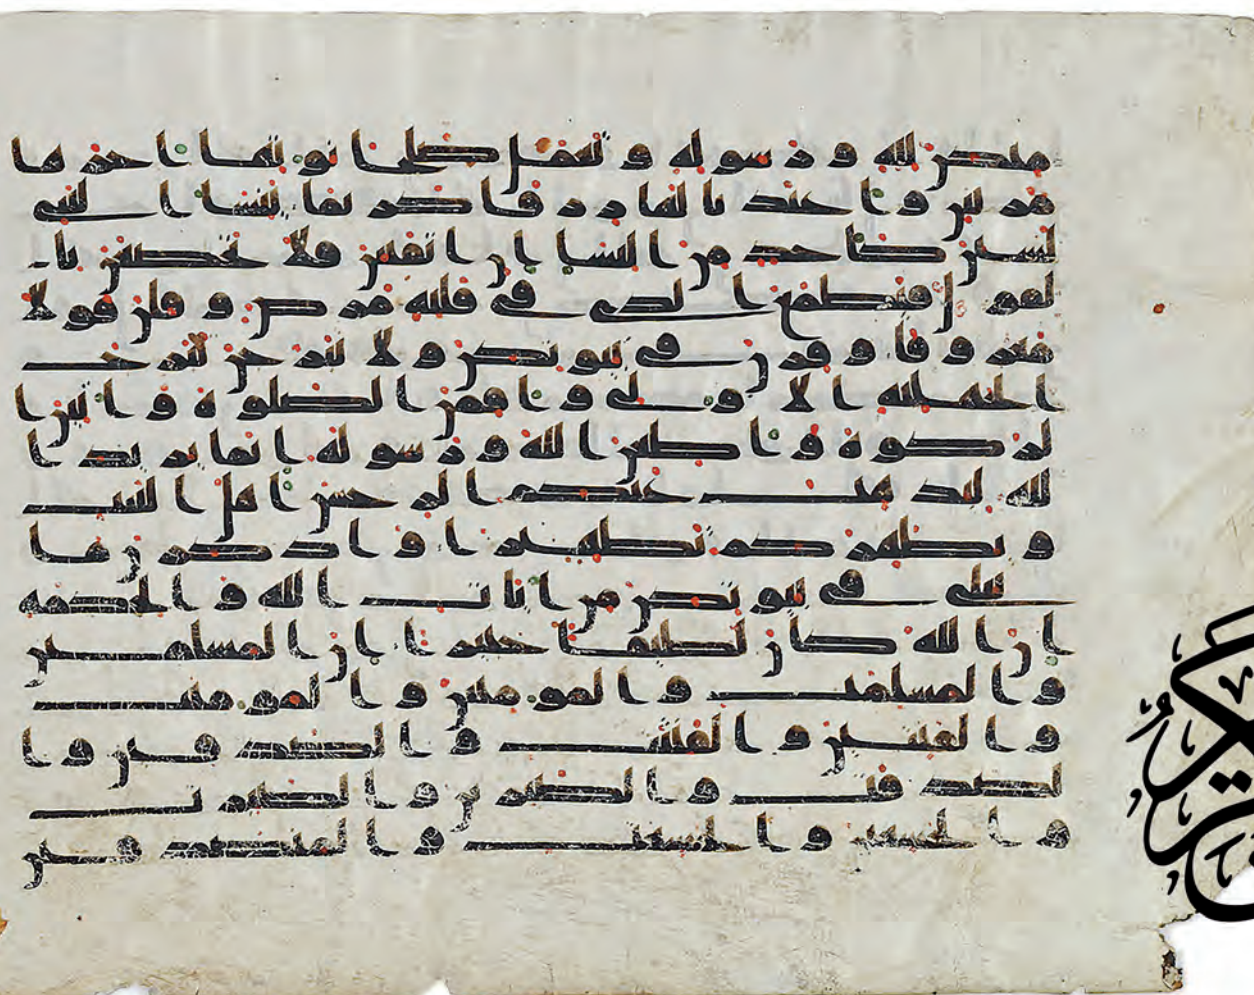 منكن لله ورسوله وتعمل صلحا نوتها اجرها
مرتين واعتدنا لها رزقا كريما ينسا النبي
لستن كاحد من النسا ان اتقيتن فلا تخضعن با
لقول فيطمع الذي في قلبه مرض وقلن قولا
معروفا وقرن في بيوتكن ولا تبرجن تبرج
الجهلية الاولى واقمن الصلوة واتين ا
لزكوة واطعن الله ورسوله انما يريد ا
لله ليذهب عنكم الرجس اهل البيت
ويطهركم تطهيرا واذكرن ما
يتلى في بيوتكن من ايت الله والحكمة
ان الله كان لطيفا خبيرا ان المسلمين
والمسلمت والمومنين والمومنت
والقنتين والقنتت والصدقين وا
لصدقت والصبرين والصبرت
والخشعين والخشعت والمتصدقين